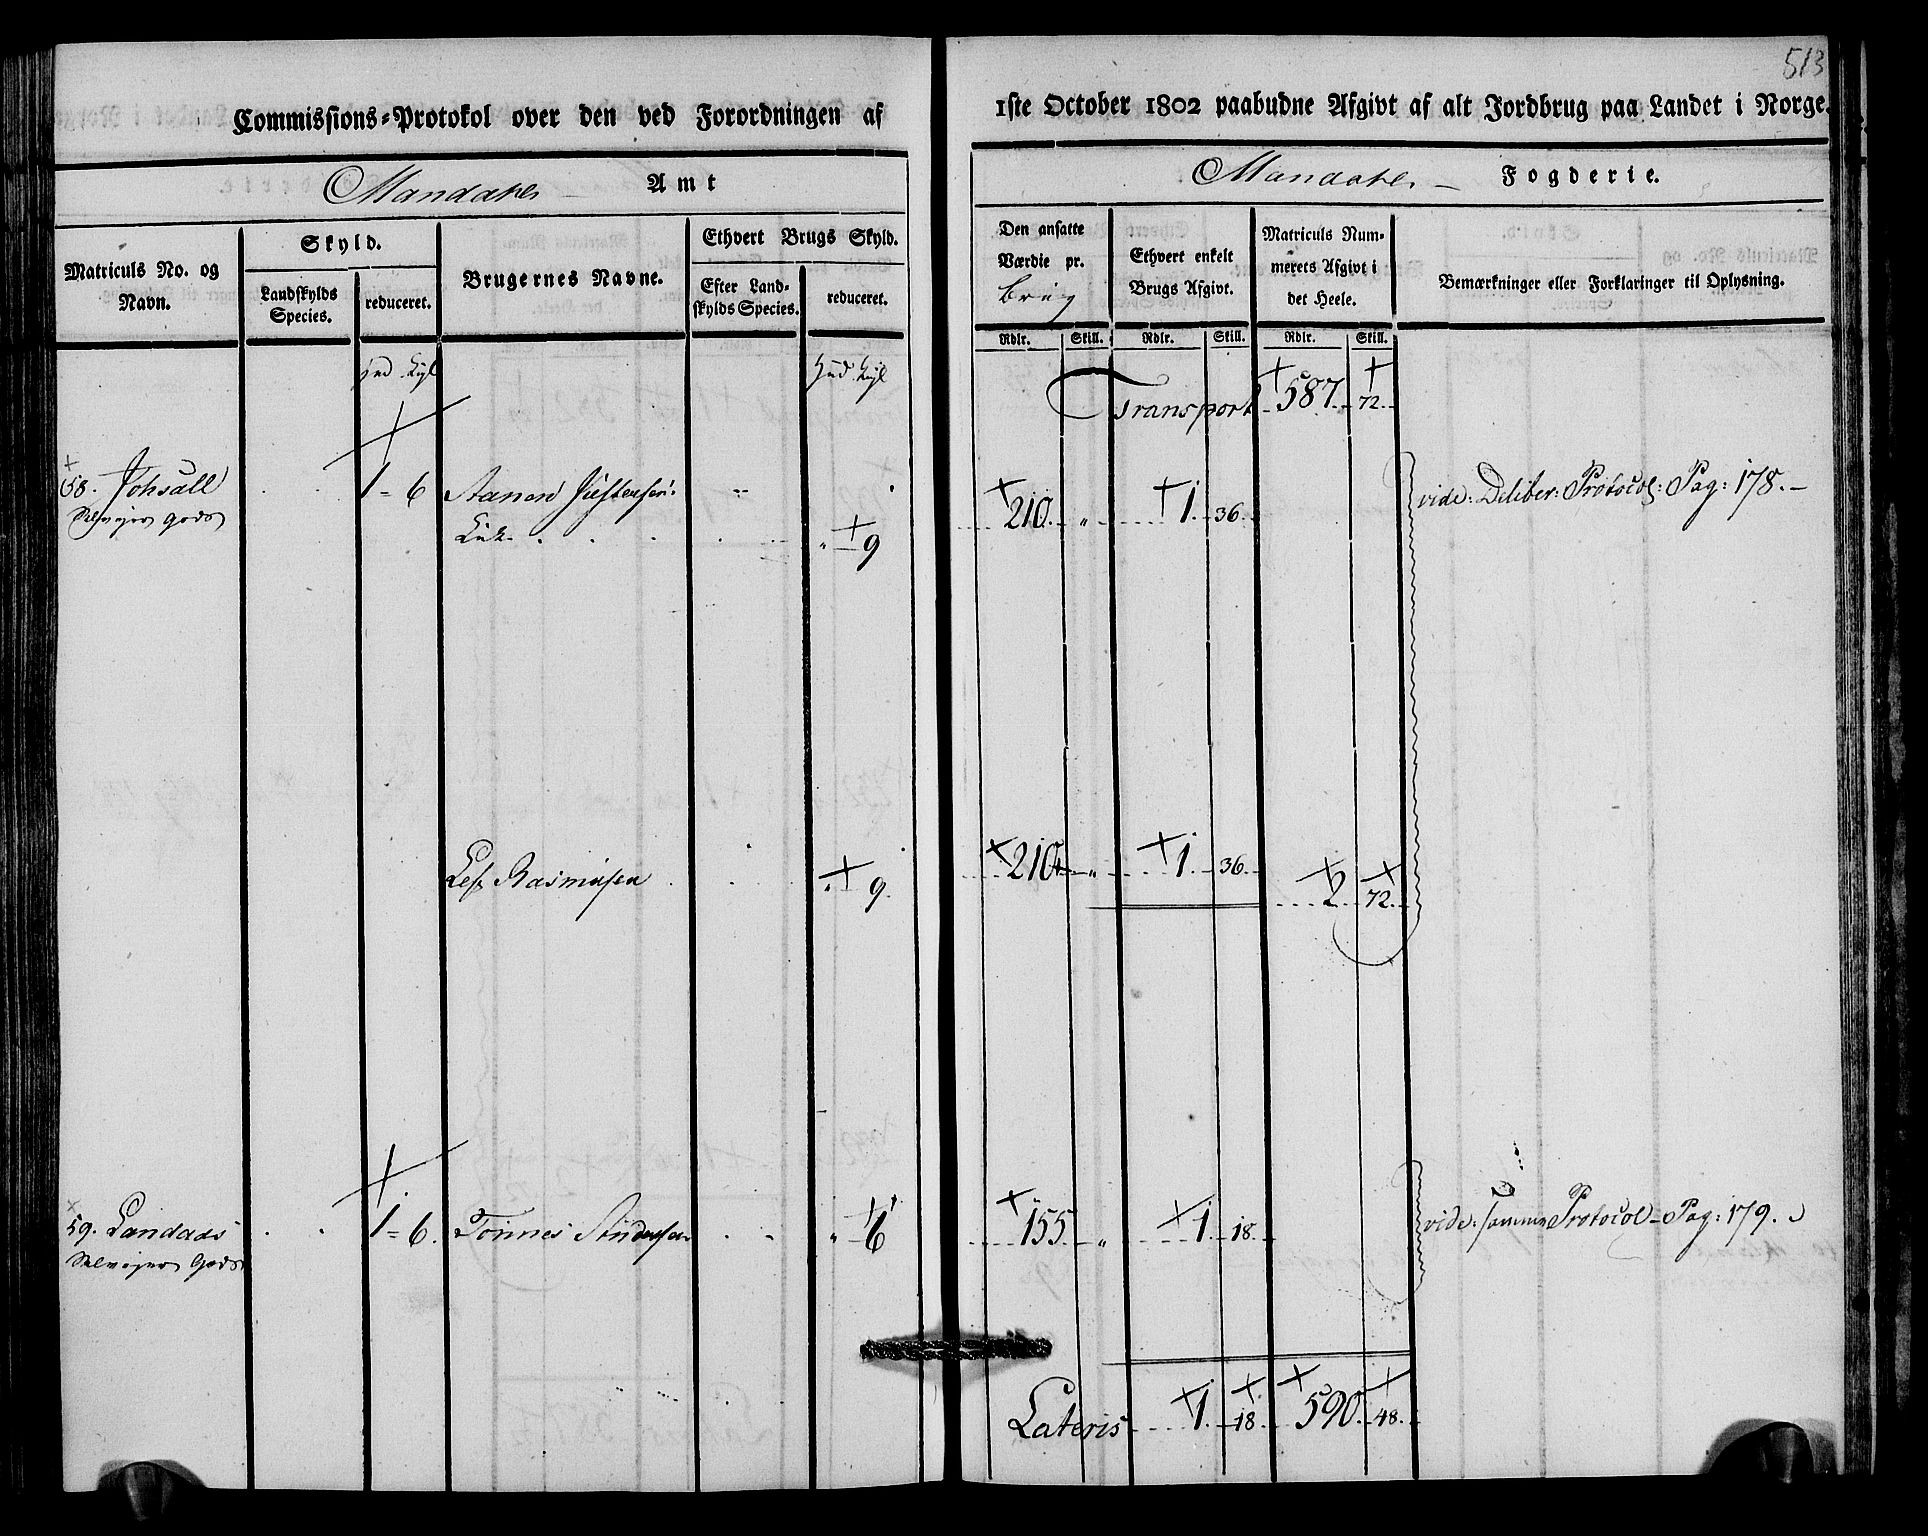 513
Commissions-Protokol over den ved Forordningen af 1ste October 1802 paabudne Afgivt af alt Jordbrug paa Landet i Norge.
Mandahls Amt
Mandahls Fogderie.
Matriculs No. og Navn.
Skyld.
Landskylds Species.
reduceret.
Brugernes Navne.
Ethvert Brugs Skyld.
Efter Landskylds Species.
reduceret.
Den ansatte Værdie pr. brug
Ethvert enkelt Brugs Afgivt.
Matriculs Nummerets Afgivt i det Heele.
Bemærkninger eller Forklaringer til Oplysning.
Rdlr. Skill. Rdlr. Skill. Rdlr. Skill.
Transport 587. 72.
58. 1 = 6 210. „ 1. 36. vide: Deliber: Protocol: Pag: 178.
Selveyer gods „ 9
Rasmusen „ 9. 210 „ 1. 36. 2. 72.
59. Landaas 1 = 6. Tönnes „ 6 155 „ 1. 18. vide: samme Protocol Pag: 179.
Selveyer Gods
Lateris 1. 18. 590. 48.